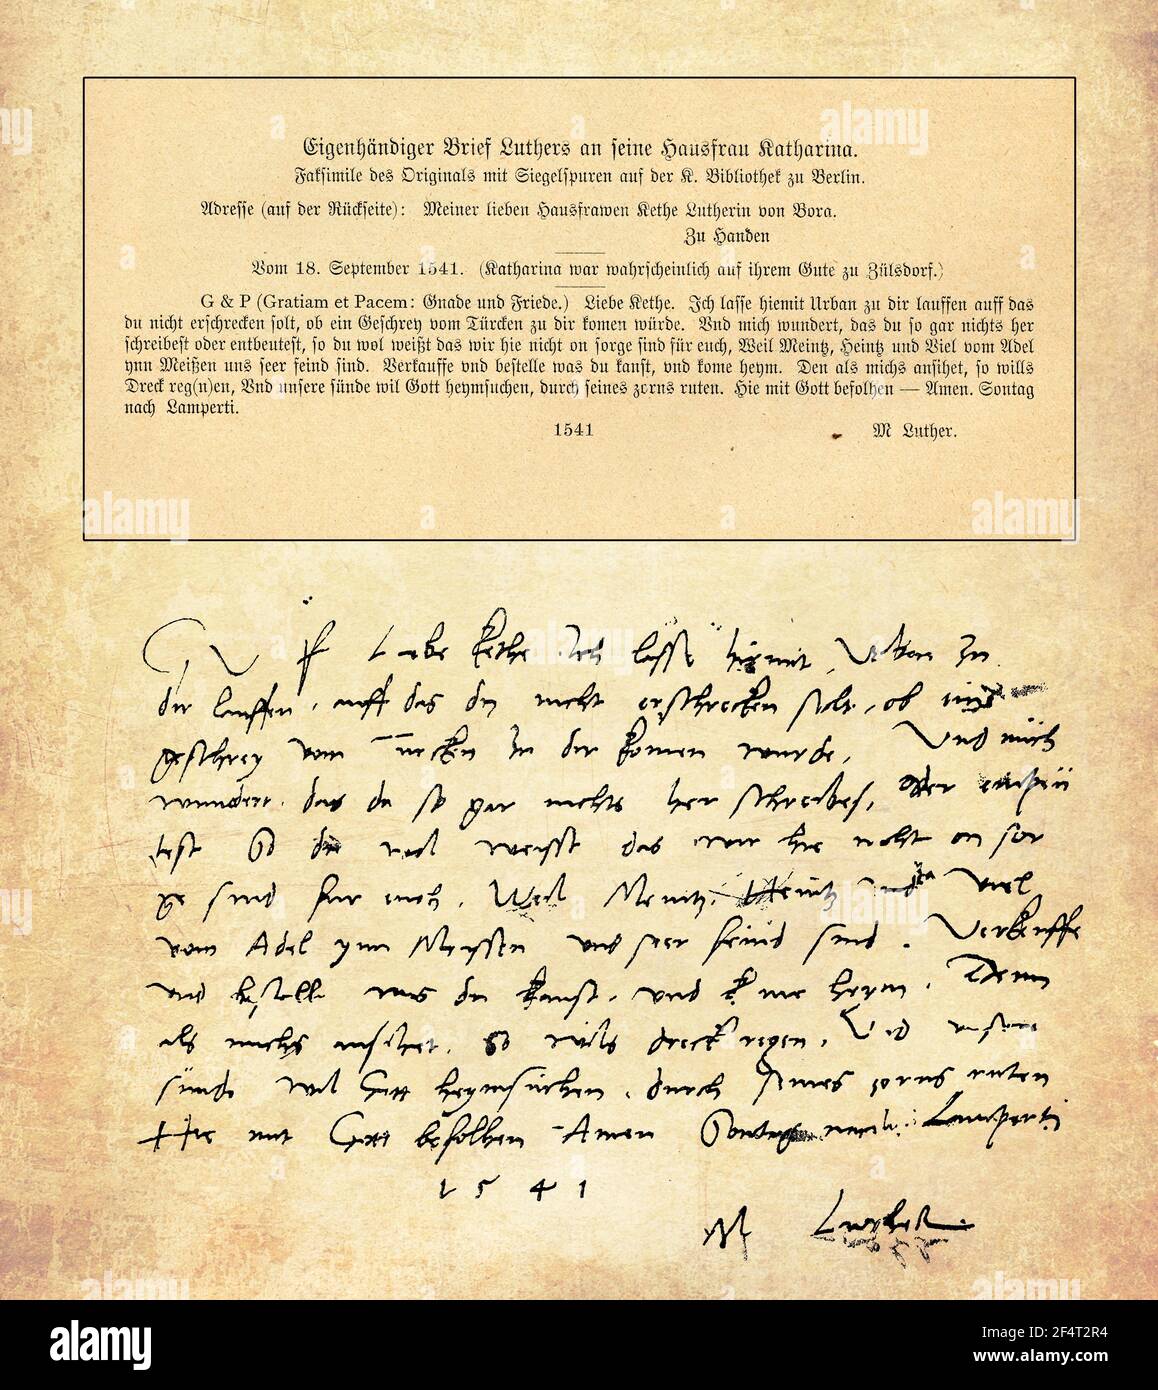 Eigenhändiger Brief Luthers an seine Hausfrau Katharina.
Faksimile des Originals mit Siegelspuren auf der K. Bibliothek zu Berlin.
Adresse (auf der Rückseite): Meiner lieben Hausfrawen Kethe Lutherin von Bora.
Zu Handen
Vom 18. September 1541. (Katharina war wahrscheinlich auf ihrem Gute zu Zülsdorf.)
G & P (Gratiam et Pacem: Gnade und Friede.) Liebe Kethe. Ich lasse hiemit Urban zu dir lauffen auff das
du nicht erschrecken solt, ob ein Geschrey vom Türcken zu dir komen würde. Vnd mich wundert, das du so gar nichts her
schreibest oder entbeutest, so du wol weißt das wir hie nicht on sorge sind für euch, Weil Meintz, Heintz und Viel vom Adel
ynn Meißen uns seer feind sind. Verkauffe vnd bestelle was du kanst, vnd kome heym. Den als michs ansihet, so wills
Dreck reg(n)en, Vnd unsere sünde wil Gott heymsuchen, durch seines zorns ruten. Hie mit Gott befolhen — Amen. Sontag
nach Lamperti.
1541 M Luther.
G V P Liebe Kethe Ich lasse hiemit Urban zu
dir lauffen, auff das du nicht erschrecken solt, ob ein
geschrey vom Turcken zu dir komen wurde. Vnd mich
wundert, das du so gar nichts her schreibes, oder entpeu
test So du wol weisst das wir hie nicht on sor
ge sind fur euch, Weil Meintz, Heintz vnd Viel
vom Adel ynn Meyssen vns seer feind sind. Verkeuffe
vnd bestelle was du kanst, vnd kome heym. Denn
als michs ansihet, So wils dreck regen, Vnd vnsere
sunde wil Gott heymsuchen, durch seines zorns ruten
Hie mit Gott befolhen Amen Sontag nach Lamperti
1541
M Luther
alamy
Image ID: 2F4T2R4
www.alamy.com